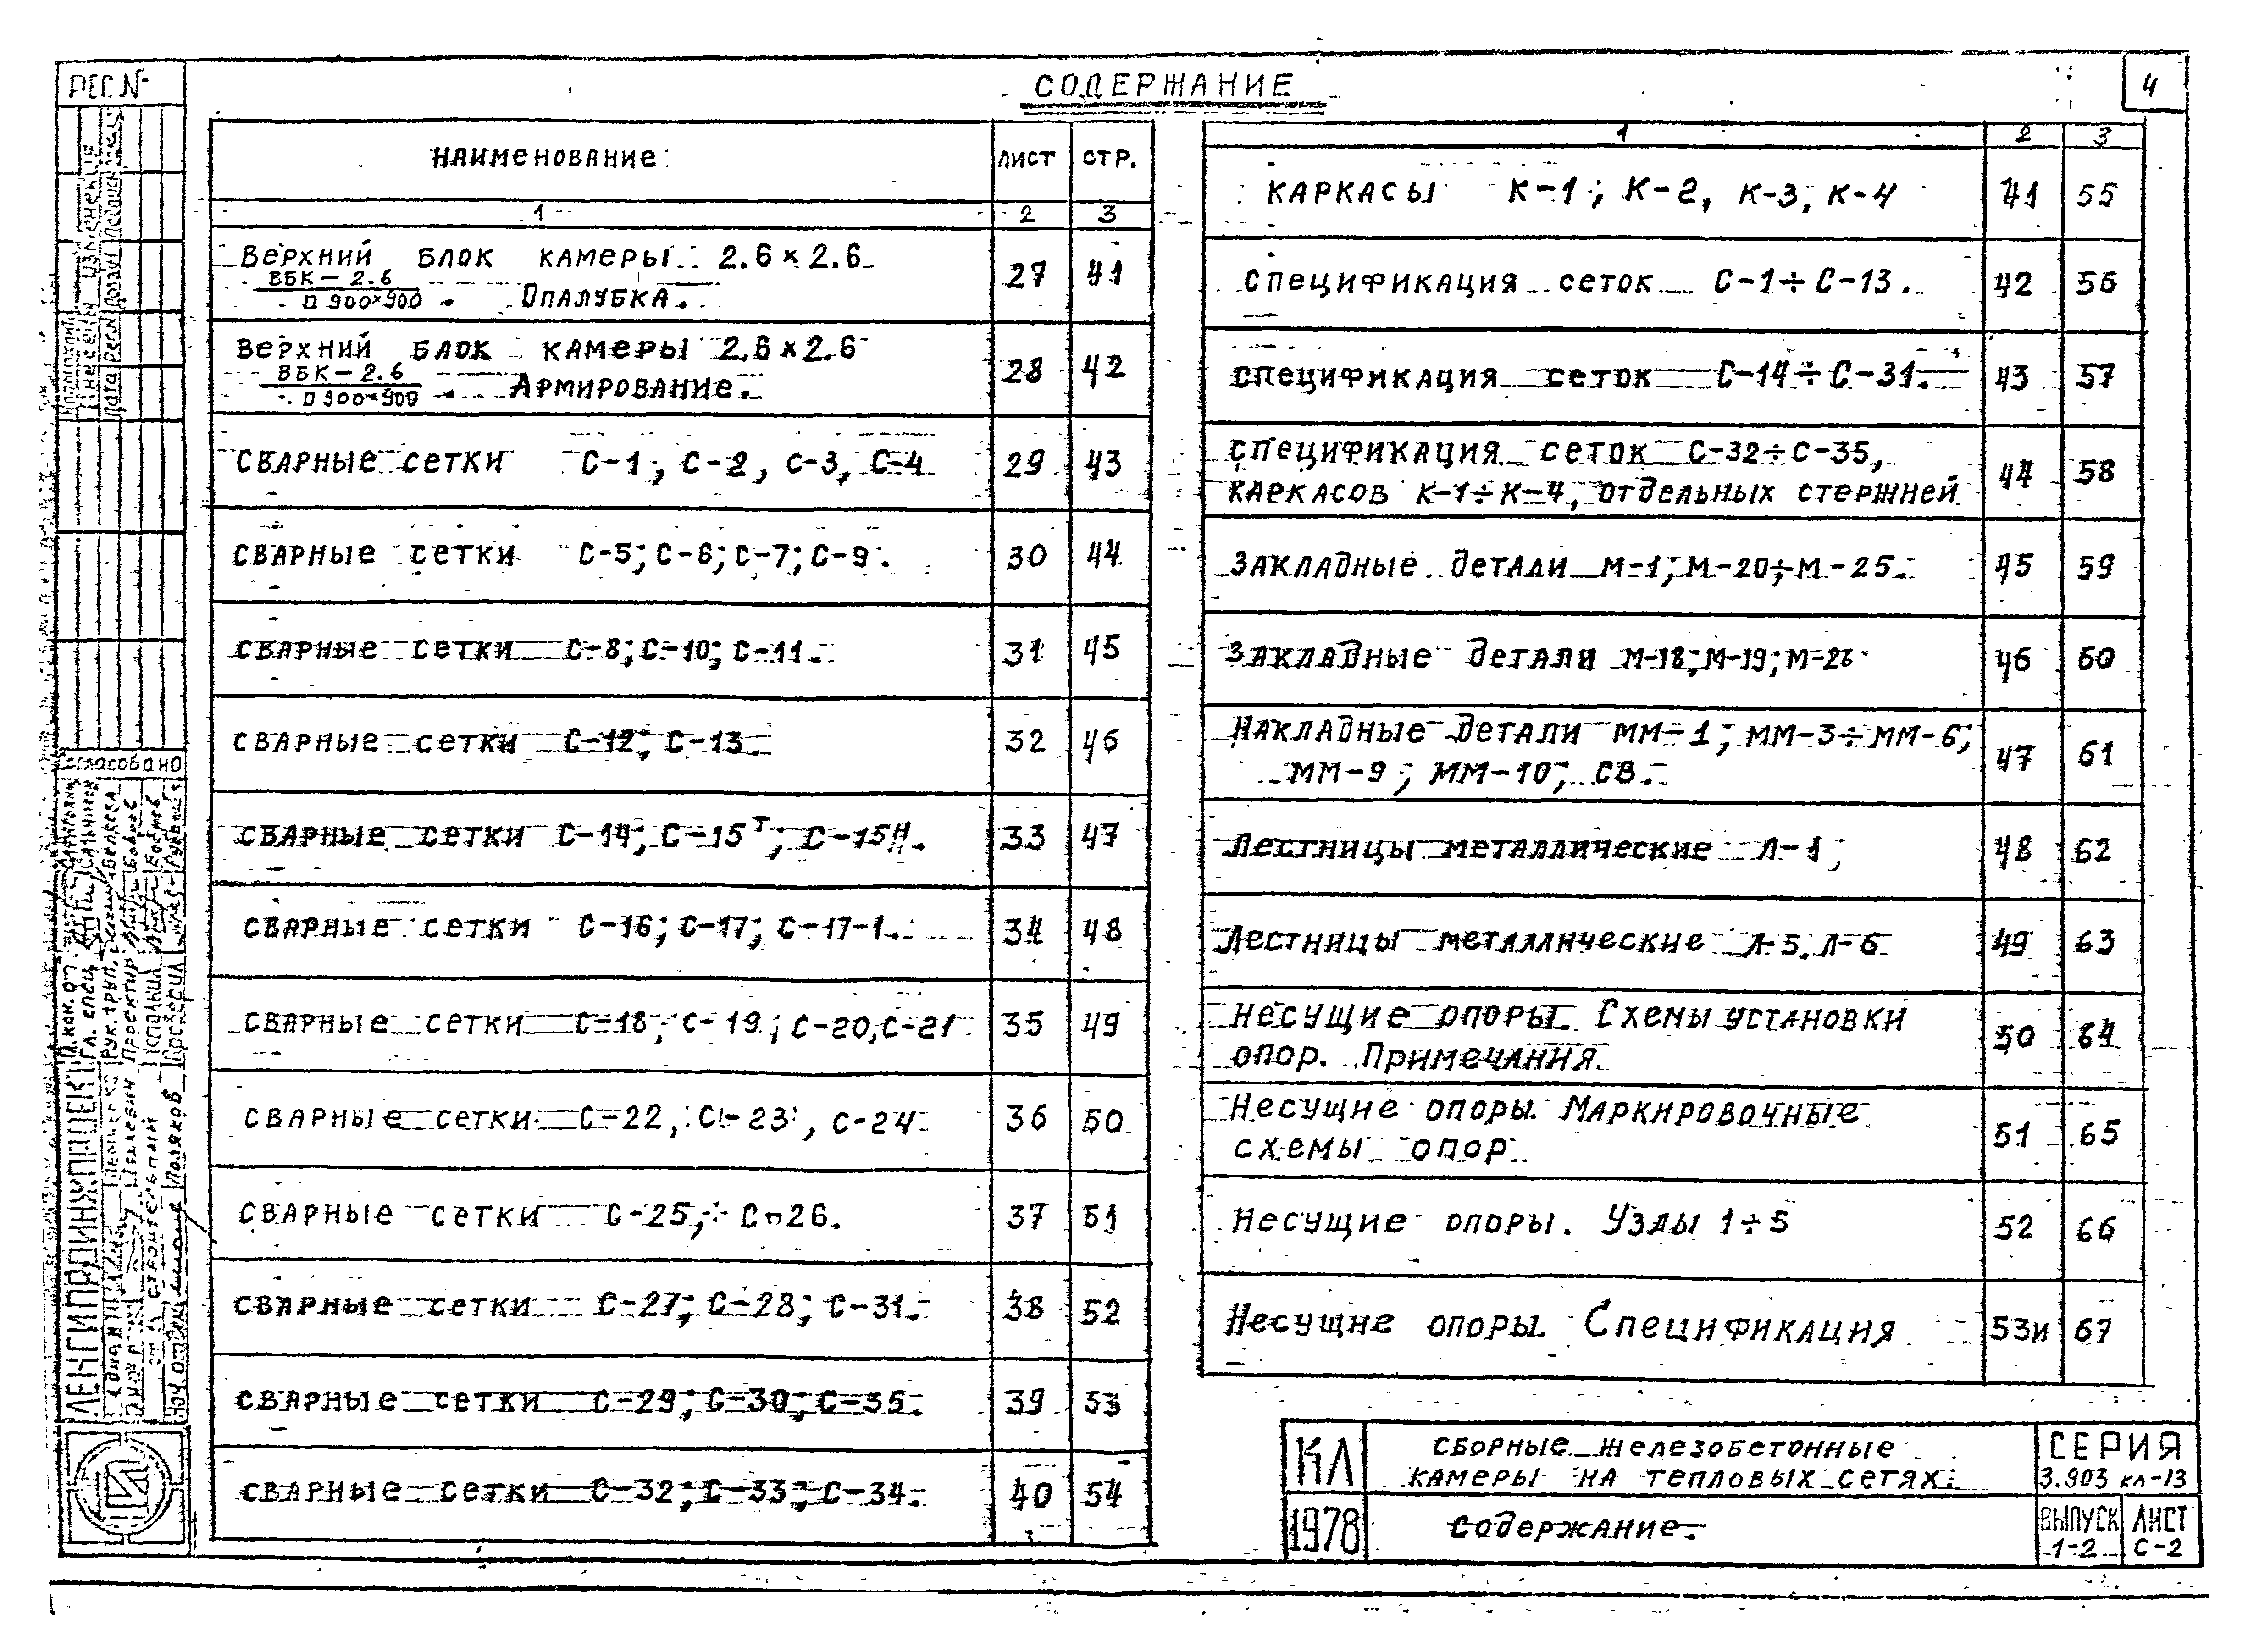 СОДЕРЖАНИЕ
4
РЕГ. №
НАИМЕНОВАНИЕ: ЛИСТ СТР.
1 2 3
ВЕРХНИЙ БЛОК КАМЕРЫ 2.6×2.6
ВБК-2.6 / □ 900×900 . ОПАЛУБКА. 27 41
ВЕРХНИЙ БЛОК КАМЕРЫ 2.6×2.6
ВБК-2.6 / □ 900×900 . АРМИРОВАНИЕ. 28 42
СВАРНЫЕ СЕТКИ С-1, С-2, С-3, С-4 29 43
СВАРНЫЕ СЕТКИ С-5; С-6; С-7; С-9. 30 44
СВАРНЫЕ СЕТКИ С-8; С-10; С-11. 31 45
СВАРНЫЕ СЕТКИ С-12; С-13. 32 46
СВАРНЫЕ СЕТКИ С-14; С-15Т; С-15Н. 33 47
СВАРНЫЕ СЕТКИ С-16; С-17; С-17-1. 34 48
СВАРНЫЕ СЕТКИ С-18, С-19; С-20, С-21 35 49
СВАРНЫЕ СЕТКИ С-22, С-23, С-24 36 50
СВАРНЫЕ СЕТКИ С-25, С-26. 37 51
СВАРНЫЕ СЕТКИ С-27; С-28; С-31. 38 52
СВАРНЫЕ СЕТКИ С-29; С-30; С-35. 39 53
СВАРНЫЕ СЕТКИ С-32; С-33; С-34. 40 54
1 2 3
КАРКАСЫ К-1; К-2, К-3; К-4 41 55
СПЕЦИФИКАЦИЯ СЕТОК С-1÷С-13. 42 56
СПЕЦИФИКАЦИЯ СЕТОК С-14÷С-31. 43 57
СПЕЦИФИКАЦИЯ СЕТОК С-32÷С-35,
КАРКАСОВ К-1÷К-4, ОТДЕЛЬНЫХ СТЕРЖНЕЙ 44 58
ЗАКЛАДНЫЕ ДЕТАЛИ М-1; М-20÷М-25. 45 59
ЗАКЛАДНЫЕ ДЕТАЛИ М-18; М-19; М-26 46 60
НАКЛАДНЫЕ ДЕТАЛИ ММ-1; ММ-3÷ММ-6;
ММ-9; ММ-10; СВ. 47 61
ЛЕСТНИЦЫ МЕТАЛЛИЧЕСКИЕ Л-1; 48 62
ЛЕСТНИЦЫ МЕТАЛЛИЧЕСКИЕ Л-5. Л-6 49 63
НЕСУЩИЕ ОПОРЫ. СХЕМЫ УСТАНОВКИ
ОПОР. ПРИМЕЧАНИЯ. 50 64
НЕСУЩИЕ ОПОРЫ. МАРКИРОВОЧНЫЕ
СХЕМЫ ОПОР 51 65
НЕСУЩИЕ ОПОРЫ. УЗЛЫ 1÷5 52 66
НЕСУЩИЕ ОПОРЫ. СПЕЦИФИКАЦИЯ 53и 67
КЛ
1978
СБОРНЫЕ ЖЕЛЕЗОБЕТОННЫЕ
КАМЕРЫ НА ТЕПЛОВЫХ СЕТЯХ.
СОДЕРЖАНИЕ.
СЕРИЯ
3.903 КЛ-13
ВЫПУСК ЛИСТ
1-2 С-2
ЛЕНГИПРОИНЖПРОЕКТ